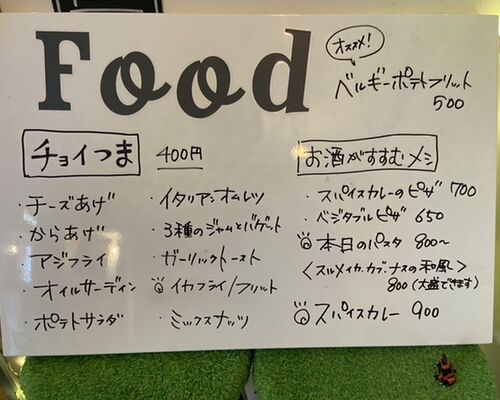 Food
オススメ!
ベルギーポテトフリット
500
チョイつま 400円
・チーズあげ
・からあげ
・アジフライ
・オイルサーディン
・ポテトサラダ
・イタリアンオムレツ
・3種のジャムとバゲット
・ガーリックトースト
イカフライ/フリット
・ミックスナッツ
お酒がすすむメシ
・スパイスカレーのピザ 700
・ベジタブルピザ 650
本日のパスタ 800〜
〈スルメイカ.カブ.ナスの和風〉
800(大盛できます)
スパイスカレー 900